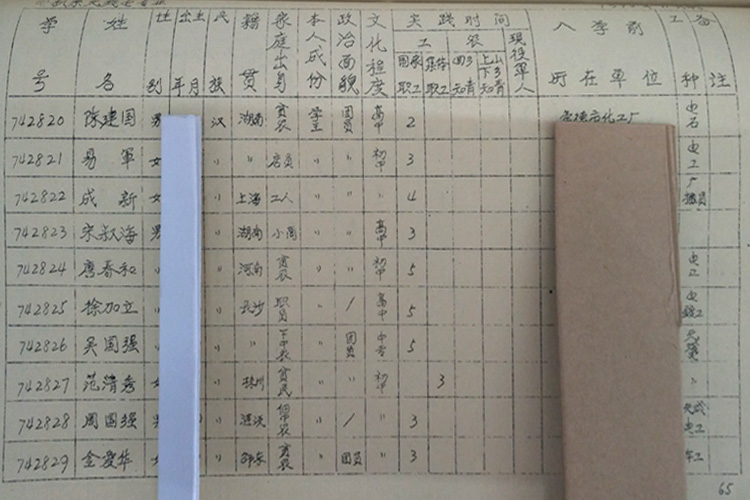 学号 姓名 性别 出生年月 民族 籍贯 家庭出身 本人成份 政治面貌 文化程度 实践时间 入学前所在单位 工种 备注
工 农 现役军人
国家职工 集体职工 回乡知青 上山下乡知青
742820 陈建国 男 汉 湖南 贫农 学生 团员 高中 2
742821 易军 女 〃 〃 店员 〃 〃 初中 3 电工
742822 成新 女 〃 上海 工人 〃 〃 〃 4
742823 宋叙海 男 〃 湖南 小商 〃 〃 高中 3
742824 唐春和 〃 〃 河南 贫农 〃 〃 初中 5 电工
742825 徐加立 〃 〃 长沙 职员 〃 / 高中 5
742826 吴国强 〃 〃 〃 下中农 团员 中专 5
742827 范清秀 女 〃 贫民 〃 〃 初中 3 〃
742828 周国强 男 〃 〃 / 〃 3
742829 金爱华 女 〃 邵东 贫农 〃 团员 〃 3 车工
65